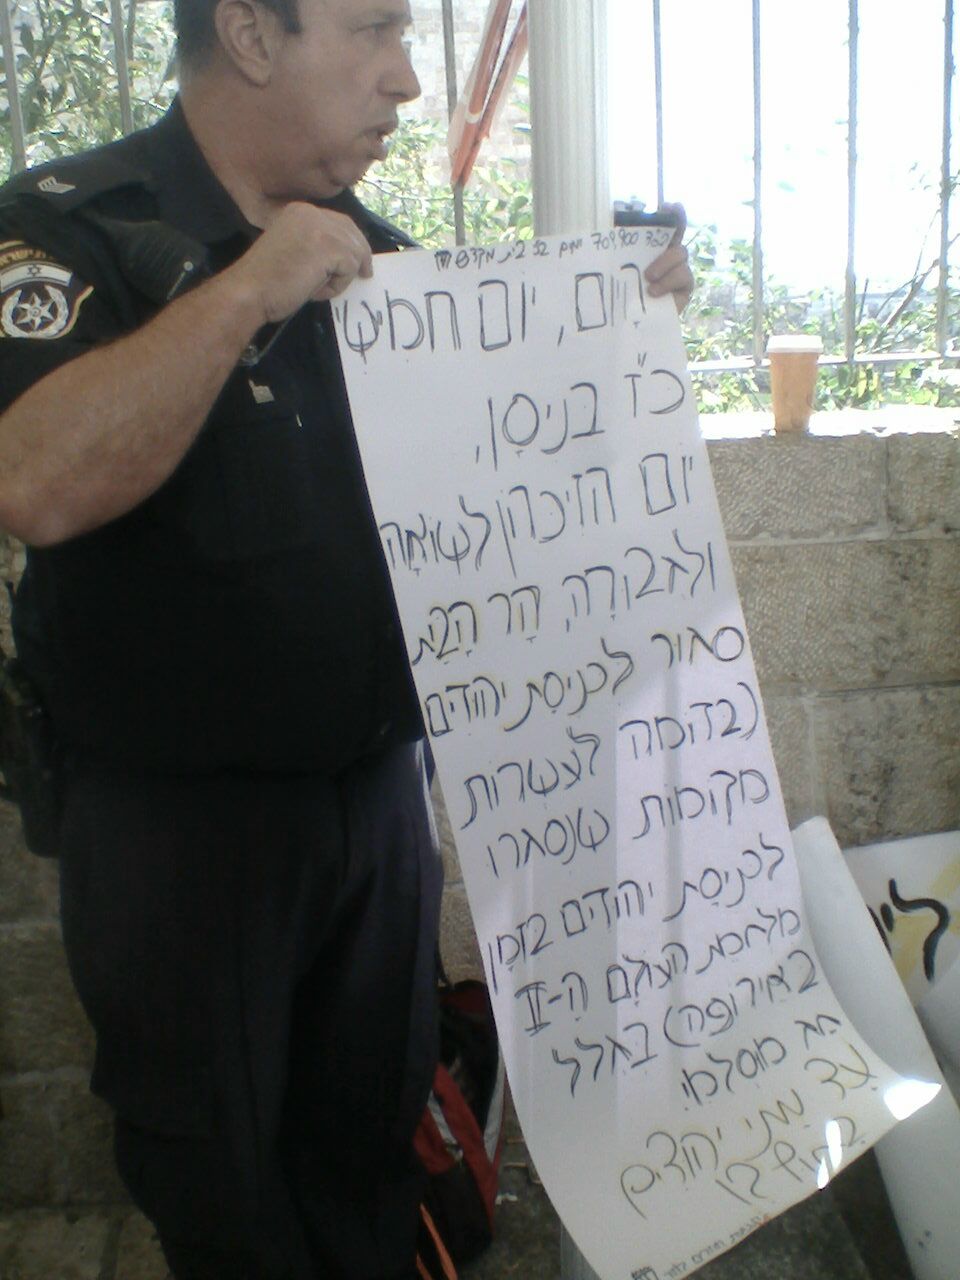 הַיּוֹם, יוֹם חֲמִישִׁי
כ"ז בְּנִיסָן,
יוֹם הַזִּיכָּרוֹן לַשּׁוֹאָה
וְלַגְּבוּרָה, הַר הַבַּיִת
סגור לכניסת יהודים
(בדומה לעשרות
מקומות שנסגרו
לכניסת יהודים בזמן
מלחמת העולם ה-II
באירופה) בגלל
חג מוסלמי
עד מתי יהודים